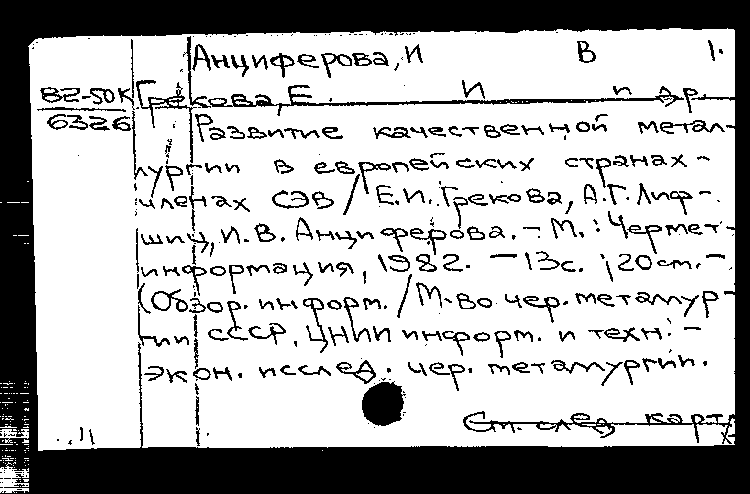 Анциферова, И В 1.
82-50К Грекова, Е. И и др.
6326 Развитие качественной метал-
лургии в европейских странах-
членах СЭВ / Е.И. Грекова, А.Г. Лиф-
шиц, И.В. Анциферова. – М.: Чермет-
информация, 1982. – 13с. ; 20см. –
(Обзор. информ. / М-во чер. металлур-
гии СССР, ЦНИИ информ. и техн.-
экон. исслед. чер. металлургии.
См. след карт